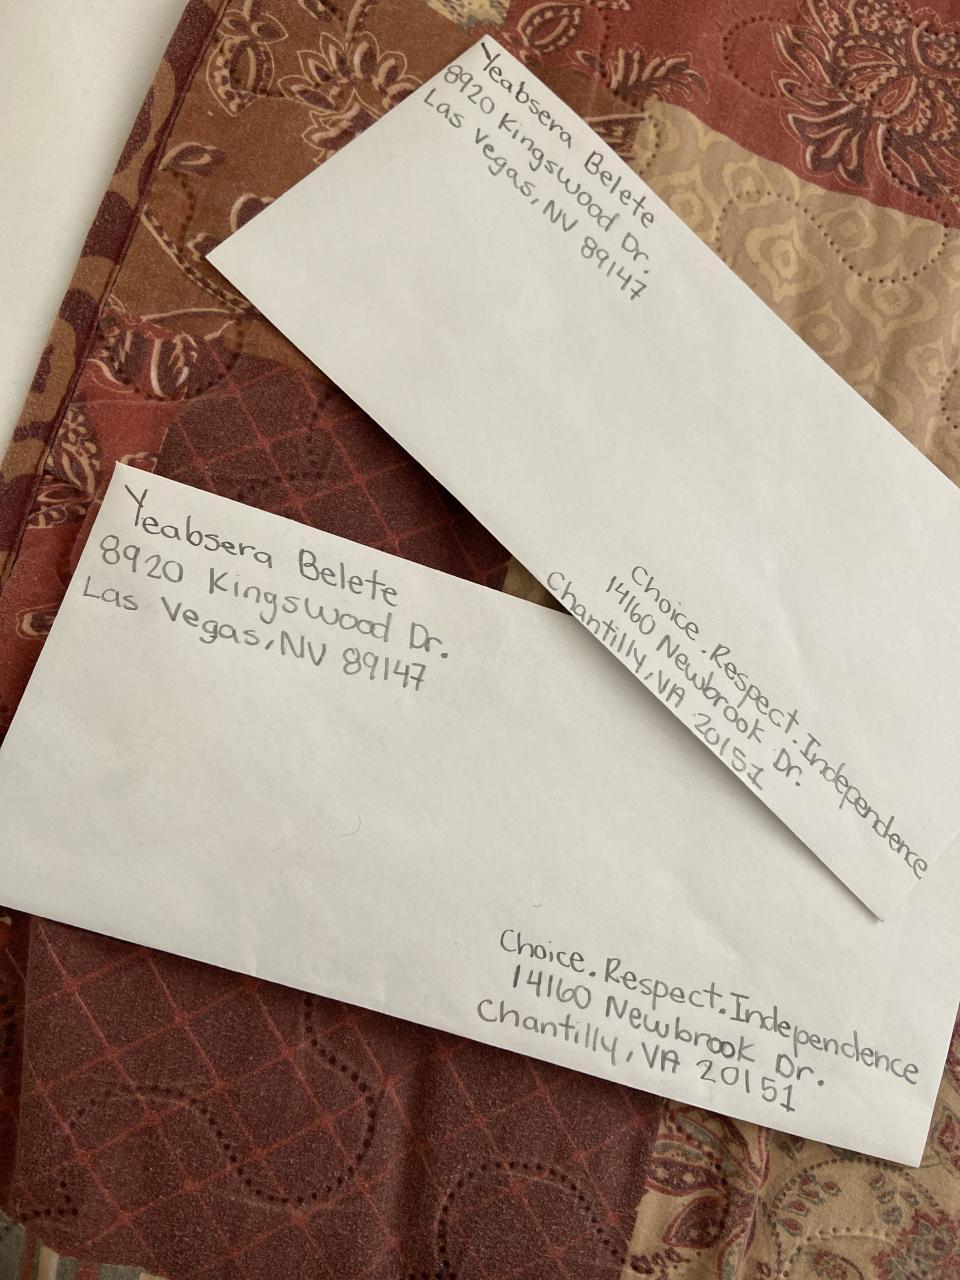 Yeabsera Belete
8920 Kingswood Dr.
Las Vegas, NV 89147
Choice.Respect.Independence
14160 Newbrook Dr.
Chantilly, VA 20151
Yeabsera Belete
8920 Kingswood Dr.
Las Vegas, NV 89147
Choice.Respect.Independence
14160 Newbrook Dr.
Chantilly, VA 20151